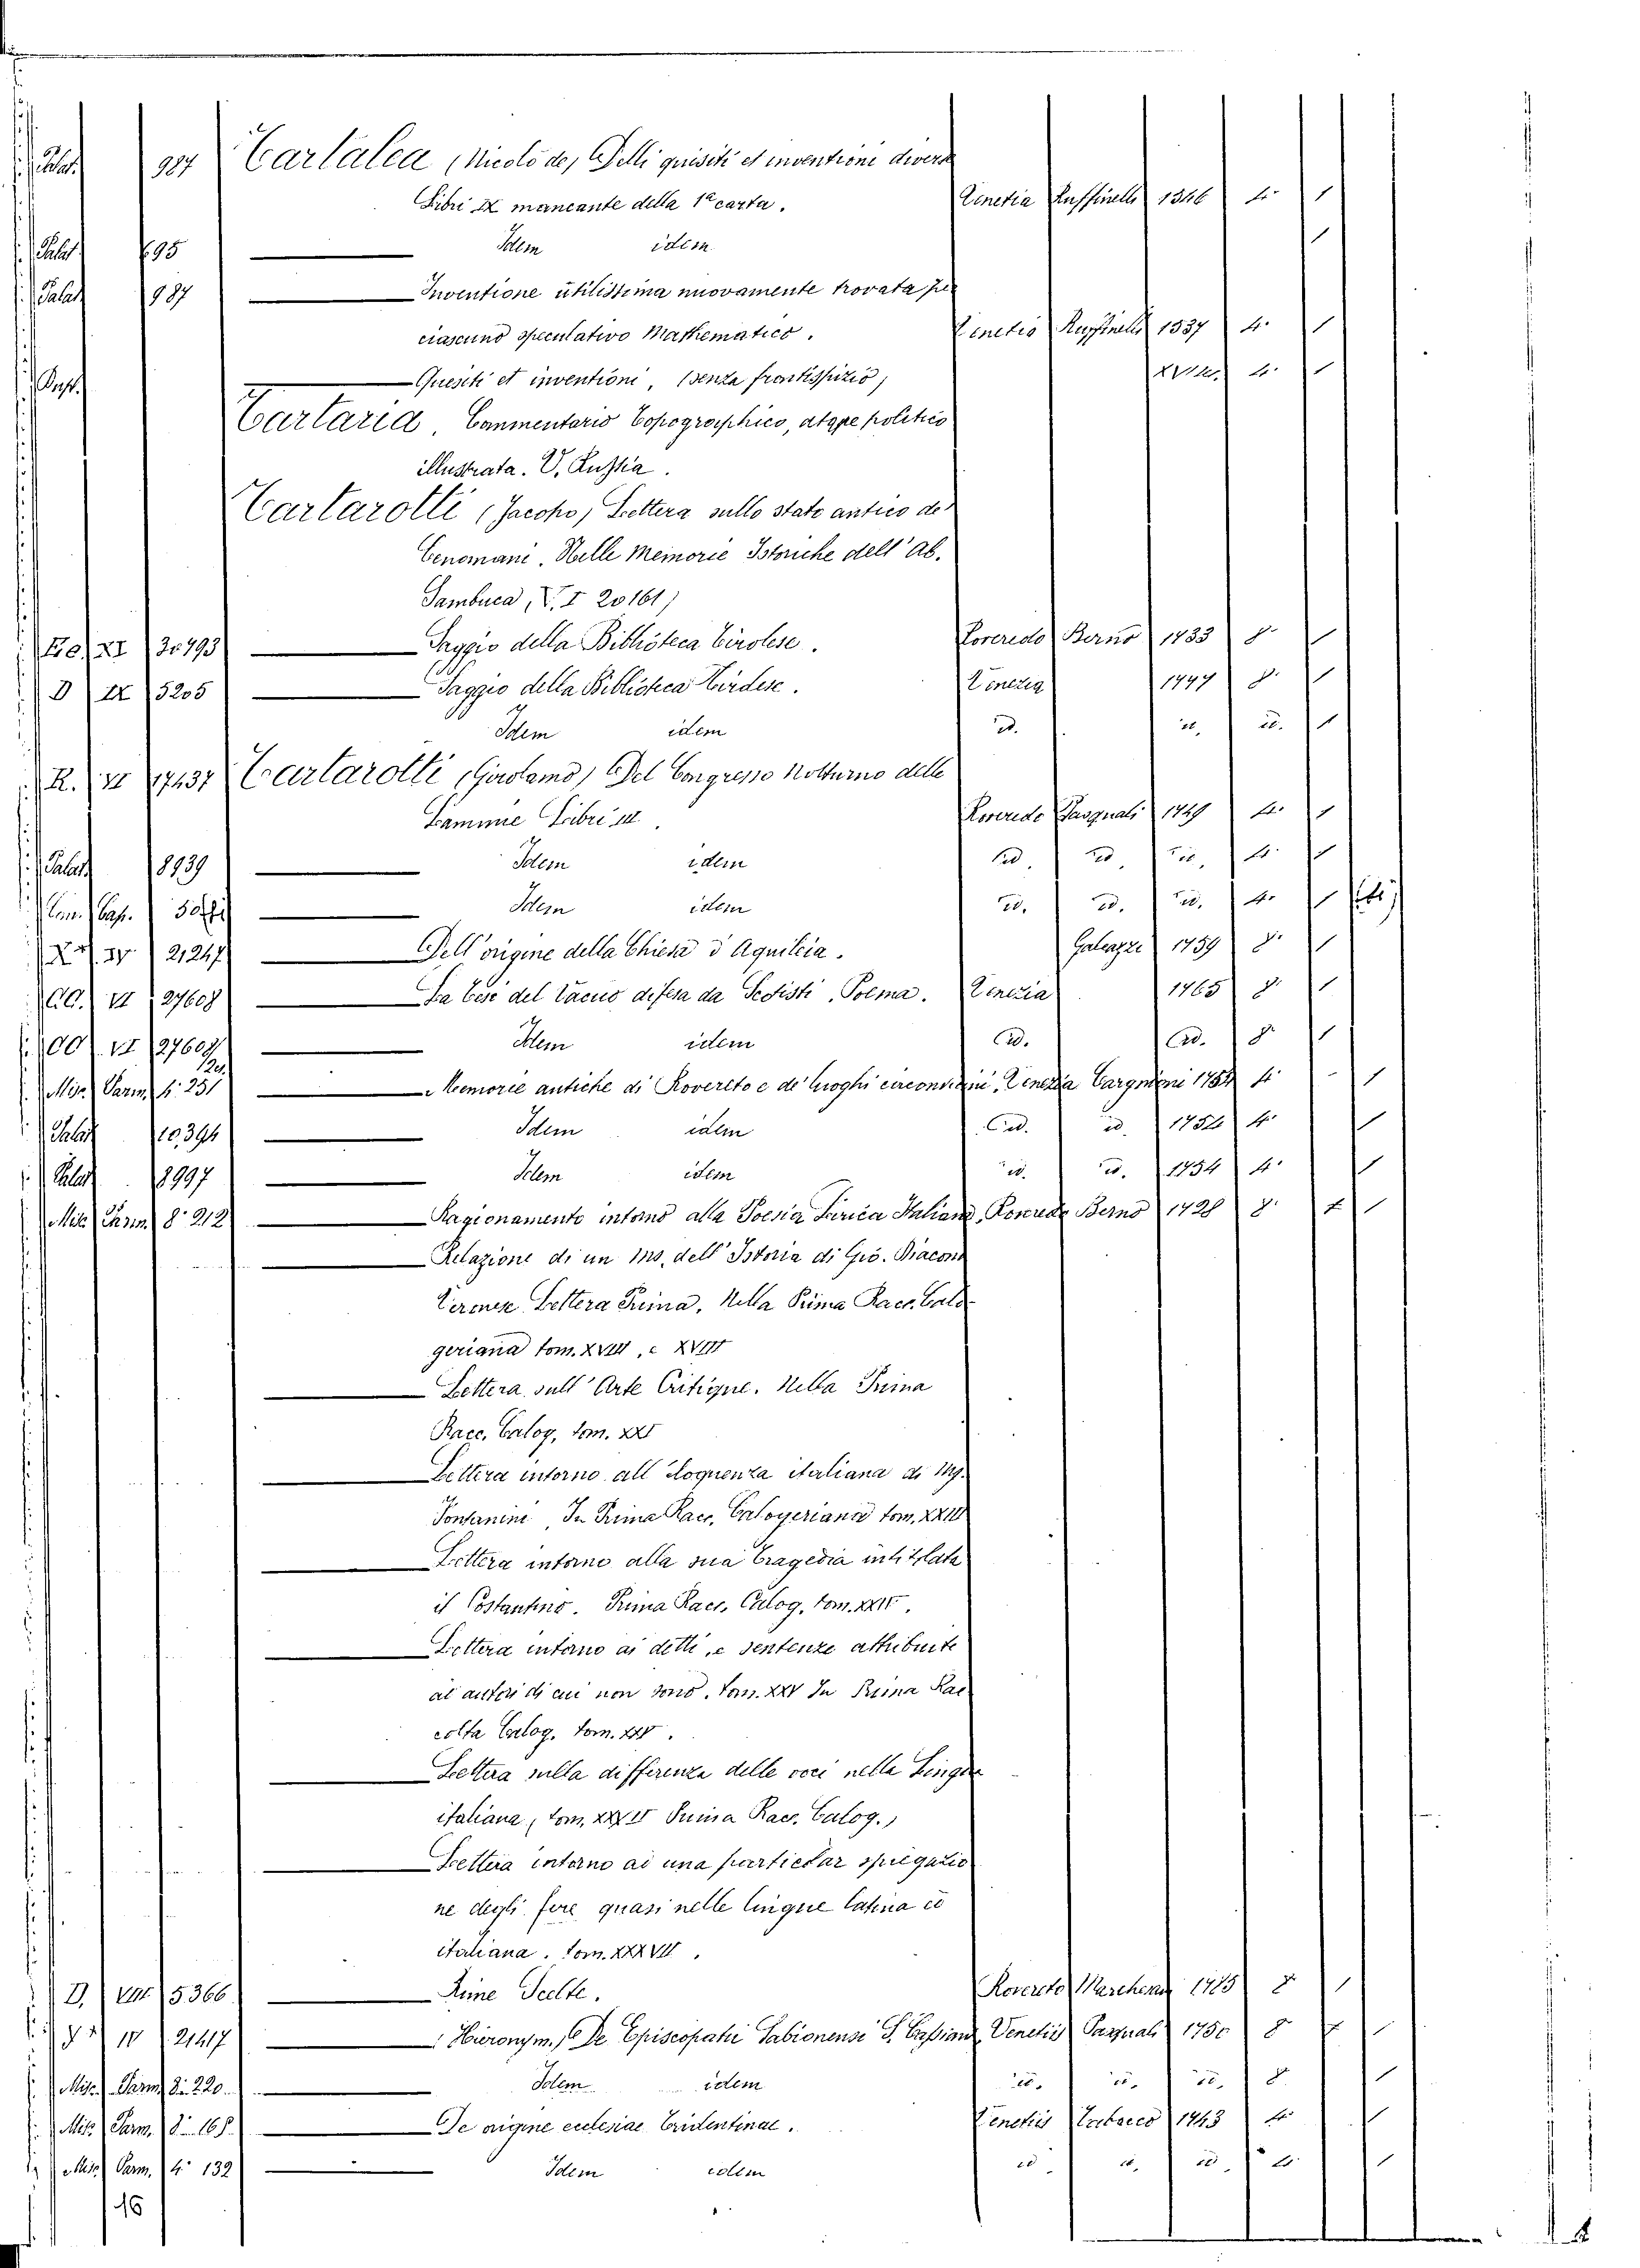 Palat. 984 Tartalea (Nicolo de) Delli quisiti et inventioni diverse
Libri IX mancante della 1a carta. Venetia Ruffinelli 1546 4. 1
Palat. 695 Idem idem 1
Palat. 987 Inventione utilissima nuovamente trovata per
ciascuno speculativo Mathematico. Venetia Ruffinelli 1537 4. 1
Quesiti et inventioni, (senza frontispizio) 4. 1
Tartaria. Commentario topographico, atque politico
illustrata. V. Russia.
Tartarotti (Jacopo) Lettera sullo stato antico de'
Cenomani. Nelle Memorie Istoriche dell' Ab.
Sambuca, V. I 20161)
XI 30493 Saggio della Biblioteca Tirolese. Roveredo Berno 1733 8. 1
D IX 5205 Saggio della Biblioteca Tirolese. Venezia 1777 8. 1
Idem idem id. id. id. 1
R. VI 17437 Tartarotti (Girolamo) Del Congresso Notturno delle
Lammie Libri III. Roveredo Pasquali 1749 4. 1
Palat. 8939 Idem idem id. id. id. 4. 1
Cap. Idem idem id. id. id. 4. 1
IV 21247 Dell'origine della Chiesa d'Aquileia. Galeazzi 1759 8. 1
CC. VI 27608 La tesi del Vacuo difesa da Scotisti, Poema. Venezia 1765 8. 1
CC. VI 27609 Idem idem id. id. 8. 1
Misc. Parm. 4. 251 Memorie antiche di Rovereto e de' luoghi circonvicini, Venezia Cargnioni 1754 4. 1
Palat. 10,394 Idem idem id. id. 1754 4. 1
Palat. 8997 Idem idem id. id. 1754 4. 1
Misc. Parm. 8. 212 Ragionamento intorno alla Poesia Lirica Italiana, Roveredo Berno 1728 8. 1
Relazione di un ms. dell' Istoria di Gio. Diacono
Veronese Lettera Prima. Nella Prima Racc. Calo-
geriana tom. XVIII, e XVIII
Lettera sull' Arte Critique. Nella Prima
Racc. Calog. tom. XXI
Lettera intorno all' eloquenza italiana di Mg.
Fontanini, In Prima Racc. Calogeriana tom. XXII
Lettera intorno alla sua tragedia intitolata
il Costantino. Prima Racc. Calog. tom. XXIV.
Lettera intorno ai detti, e sentenze attribuite
ad autori di cui non sono. tom. XXV In Prima Rac-
colta Calog. tom. XXV.
Lettera sulla differenza delle voci nella Lingua
italiana, tom. Prima Racc. Calog.,
Lettera intorno ad una particolar spiegazio-
ne degli fere quasi nelle lingue latina ed
italiana. tom. XXXVII.
D. VIII 5366 Rime Scelte. Rovereto Marchesani 1785 8. 1
IV 21417 (Hieronym.) De Episcopatu Sabionensi S. Cassiani, Venetiis Pasquali 1750 8 1
Misc. Parm. 8. 220. Idem idem id. id. id. 8. 1
Misc. Parm. 8. 168. De origine ecclesiae Tridentinae. Venetiis 1743 4. 1
Misc. Parm. 4. 132 Idem idem id. id. id. 4. 1
16